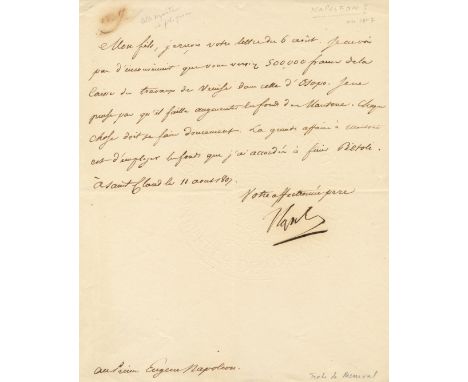 NAPOLEON I
Mon fils, je reçois votre lettre du 6 août. Je ne vois
pas d'inconvénient que vous versiez 500000 francs de la
Caisse des travaux de Venise dans celle d'Osopo. Je ne
pense pas qu'il faille augmenter les fonds de Mantoue. Chaque
chose doit se faire doucement. La grande affaire à Mantoue
est d'employer les fonds que j'ai accordés à finir Pietole.
à Saint Cloud le 11 août 1807.
Votre affectionné père
Au Prince Eugène Napoléon.